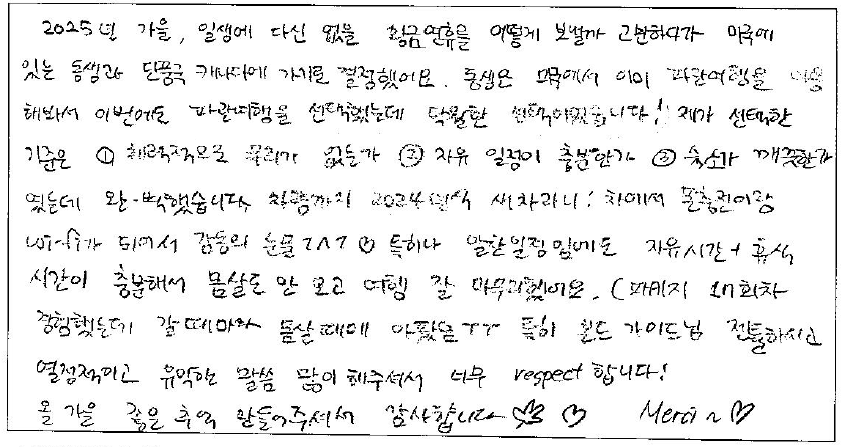 2025년 가을, 일생에 다신 없을 황금연휴를 어떻게 보낼까 고민하다가 미국에
있는 동생과 단풍국 캐나다에 가기로 결정했어요. 동생은 미국에서 이미 파란여행을 이용
해봐서 이번에도 파란여행을 선택했는데 탁월한 선택이었습니다! 제가 선택한
기준은 ① 체력적으로 무리가 없는가 ② 자유 일정이 충분한가 ③ 숙소가 깨끗한가
였는데 완-벽했습니다. 차량까지 2024년식 새차라니! 차에서 폰충전이랑
wi-fi가 되어서 감동의 눈물 ㅜㅅㅜ ♡ 특히나 알찬일정임에도 자유시간+휴식
시간이 충분해서 몸살도 안 오고 여행 잘 마무리했어요. (패키지 10회차
경험했는데 갈 때마다 몸살 때매 아팠음ㅜㅜ 특히 본드 가이드님 젠틀하시고
열정적이고 유익한 말씀 많이 해주셔서 너무 respect 합니다!
올 가을 좋은 추억 만들어주셔서 감사합니다 ♡ Merci ~ ♡